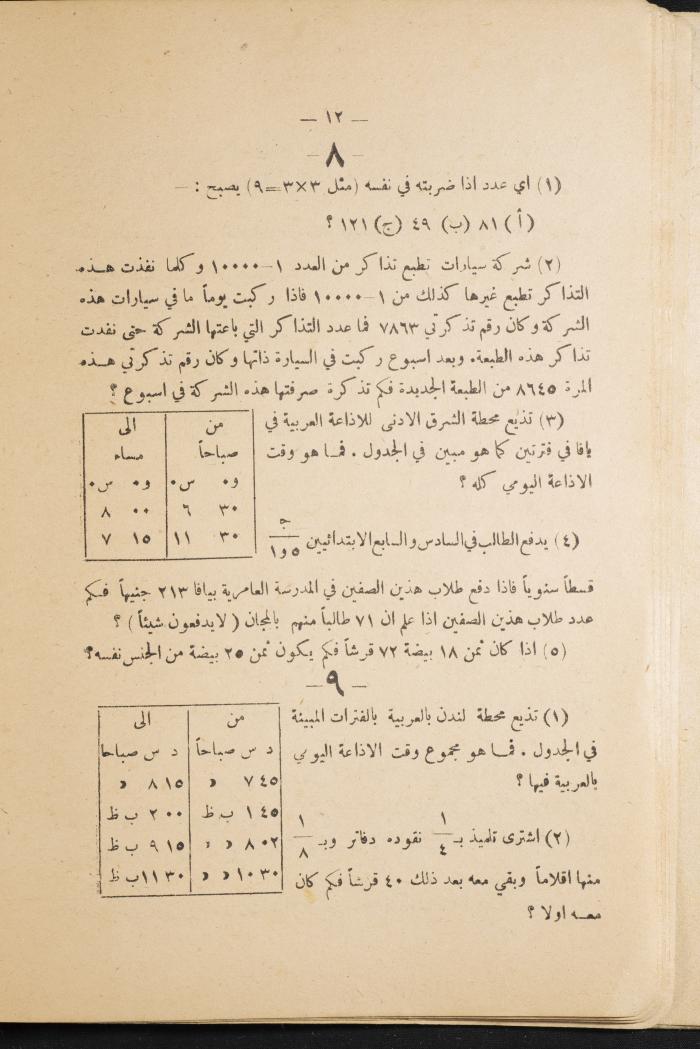 — ١٢ —
— ٨ —
(١) اي عدد اذا ضربته في نفسه (مثل ٣×٣=٩) يصبح : —
(أ) ٨١ (ب) ٤٩ (ج) ١٢١ ؟
(٢) شركة سيارات تطبع تذاكر من العدد ١–١٠٠٠٠ وكلما نفذت هذه
التذاكر تطبع غيرها كذلك من ١–١٠٠٠٠ فاذا ركبت يوماً ما في سيارات هذه
الشركة وكان رقم تذكرتي ٧٨٦٣ فما عدد التذاكر التي باعتها الشركة حتى نفدت
تذاكر هذه الطبعة. وبعد اسبوع ركبت في السيارة ذاتها وكان رقم تذكرتي هذه
المرة ٨٦٤٥ من الطبعة الجديدة فكم تذكرة صرفتها هذه الشركة في اسبوع ؟
(٣) تذيع محطة الشرق الادنى للاذاعة العربية في
يافا في فترتين كما هو مبين في الجدول . فما هو وقت
الاذاعة اليومي كله ؟
من الى
صباحاً مساء
و٠ س٠ و٠ س٠
٣٠ ٦ ٠٠ ٨
٣٠ ١١ ١٥ ٧
(٤) يدفع الطالب في السادس والسابع الابتدائيين ج ١٥و١
قسطاً سنوياً فاذا دفع طلاب هذين الصفين في المدرسة العامرية بيافا ٢١٣ جنيهاً فكم
عدد طلاب هذين الصفين اذا علم ان ٧١ طالباً منهم بالمجان (لايدفعون شيئاً) ؟
(٥) اذا كان ثمن ١٨ بيضة ٧٢ قرشاً فكم يكون ثمن ٢٥ بيضة من الجنس نفسه؟
— ٩ —
(١) تذيع محطة لندن بالعربية بالفترات المبينة
في الجدول . فما هو مجموع وقت الاذاعة اليومي
بالعربية فيها ؟
من الى
د س صباحاً د س صباحا
٤٥ ٧ » ١٥ ٨ »
٤٥ ١ ب ظ ٠٠ ٢ ب ظ
٠٢ ٨ » » ١٥ ٩ ب ظ
٣٠ ١٠ » » ٣٠ ١١ ب ظ
(٢) اشترى تلميذ بـ ١/٤ نقوده دفاتر وبـ ١/٨
منها اقلاماً وبقي معه بعد ذلك ٤٠ قرشاً فكم كان
معه اولا ؟